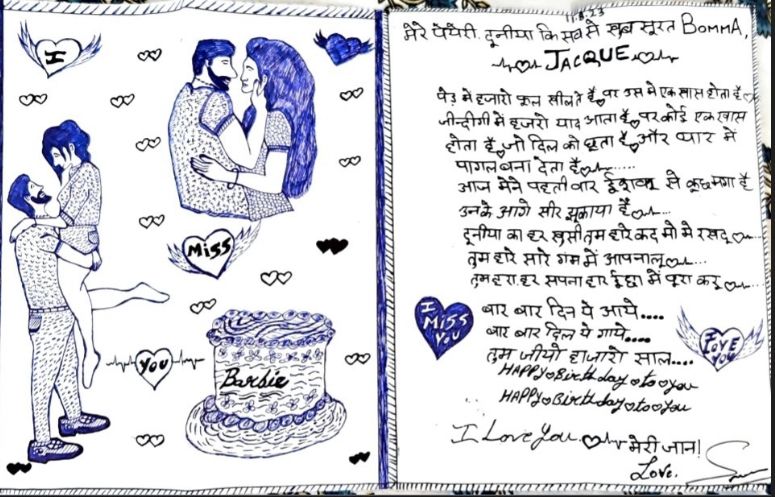 I
MISS
YOU
Barbie
11.8.23
मेरे पेयेरी, दूनीया कि सब से खुब सूरत BOMMA,
JACQUE
पेड़ मे हजारो फूल खीलते है पर उस मे एक खास होता है
जीन्दीगी मे हजरो याद आता है पर कोई एक खास
होता है जो दिल को छूता है और प्यार मे
पागल बना देता है......
आज मेने पहली बार ईशवर से कुछ मगा है
उनके आगे सीर झूकाया है
दूनीया का हर खुसी तुम हारे कद मो मे रखदू
तुम हारे सारे गम में आपनालू......
तुम हारा हर सपना हार ईछा में पूरा करू
I MISS YOU
बार बार दिन ये आये....
बार बार दिल ये गाये....
I LOVE YOU
तुम जीयो हाजारो साल....
HAPPY Birthday to you
HAPPY Birthday to you
I Love You मेरी जान!
Love.